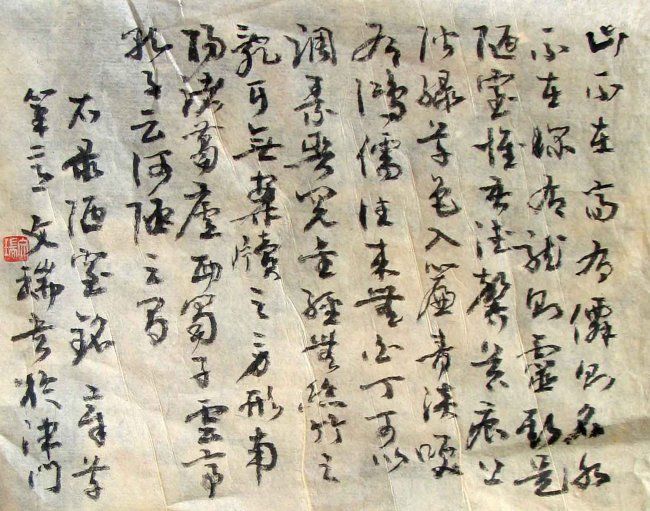 山不在高有僊則名水
不在深有龍則靈斯是
陋室惟吾德馨苔痕上
階綠草色入簾青談咲
有鴻儒往來無白丁可以
調素琴閱金經無絲竹之
亂耳無案牘之勞形南
陽諸葛廬西蜀子雲亭
孔子云何陋之有
右錄陋室銘章草
筆意文瑞書於津門